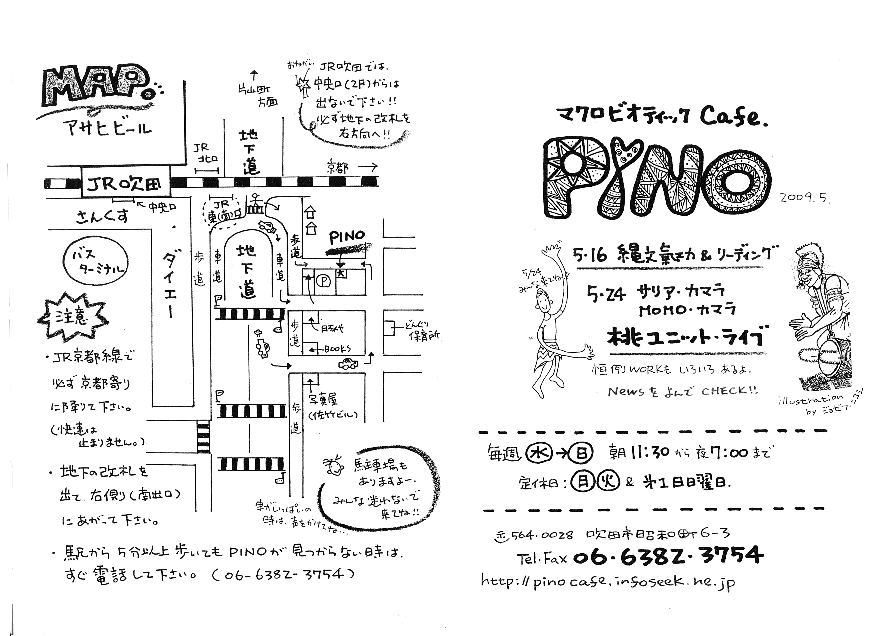 MAP
アサヒビール
JR吹田
さんくす
中央口
バス
ターミナル
ダイエー
注意
・JR京都線で
必ず京都寄り
に降りて下さい。
(快速は
止まりません。)
・地下の改札を
出て右側り(南出口)
にあがって下さい。
・駅から5分以上歩いてもPINOが見つからない時は、
すぐ電話して下さい。(06-6382-3754)
片山町
方面
JR
北口
地下道
京都
JR吹田では、
中央口(2F)からは
出ないで下さい!!
必ず地下の改札を
右方向へ!!
JR
東南口
地下道
歩道
車道
車道
歩道
PINO
P
BOOKS
どんぐり
保育所
歩道
写真屋
(佐竹ビル)
歩道
駐車場も
ありますよー。
みんな迷わないで
来てね!!
車がいっぱいの
時は、声をかけてね。
マクロビオティック Cafe.
PINO
2009.5.
5・16 縄文氣功&リーディング
5/24
み〜な来てね!
5・24 サリア・カマラ
MOMO・カマラ
桃ユニット・ライブ
恒例WORKもいろいろあるよ。
NewsをよんでCHECK!!
illustration
by
毎週 水→日 朝11:30から夜7:00まで
定休日:月火 & 第1日曜日.
〒564-0028 吹田市昭和町6-3
Tel・Fax 06・6382・3754
http://pinocafe.infoseek.ne.jp